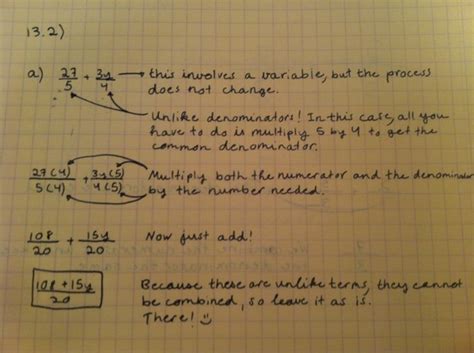 13.2)
a) 27/5 + 3y/4 → this involves a variable, but the process
does not change.
Unlike denominators! In this case, all you
have to do is multiply 5 by 4 to get the
common denominator.
27(4)/5(4) + 3y(5)/4(5) Multiply both the numerator and the denominator
by the number needed.
108/20 + 15y/20 Now just add!
108+15y/20 Because these are unlike terms, they cannot
be combined, so leave it as is.
There! ☺